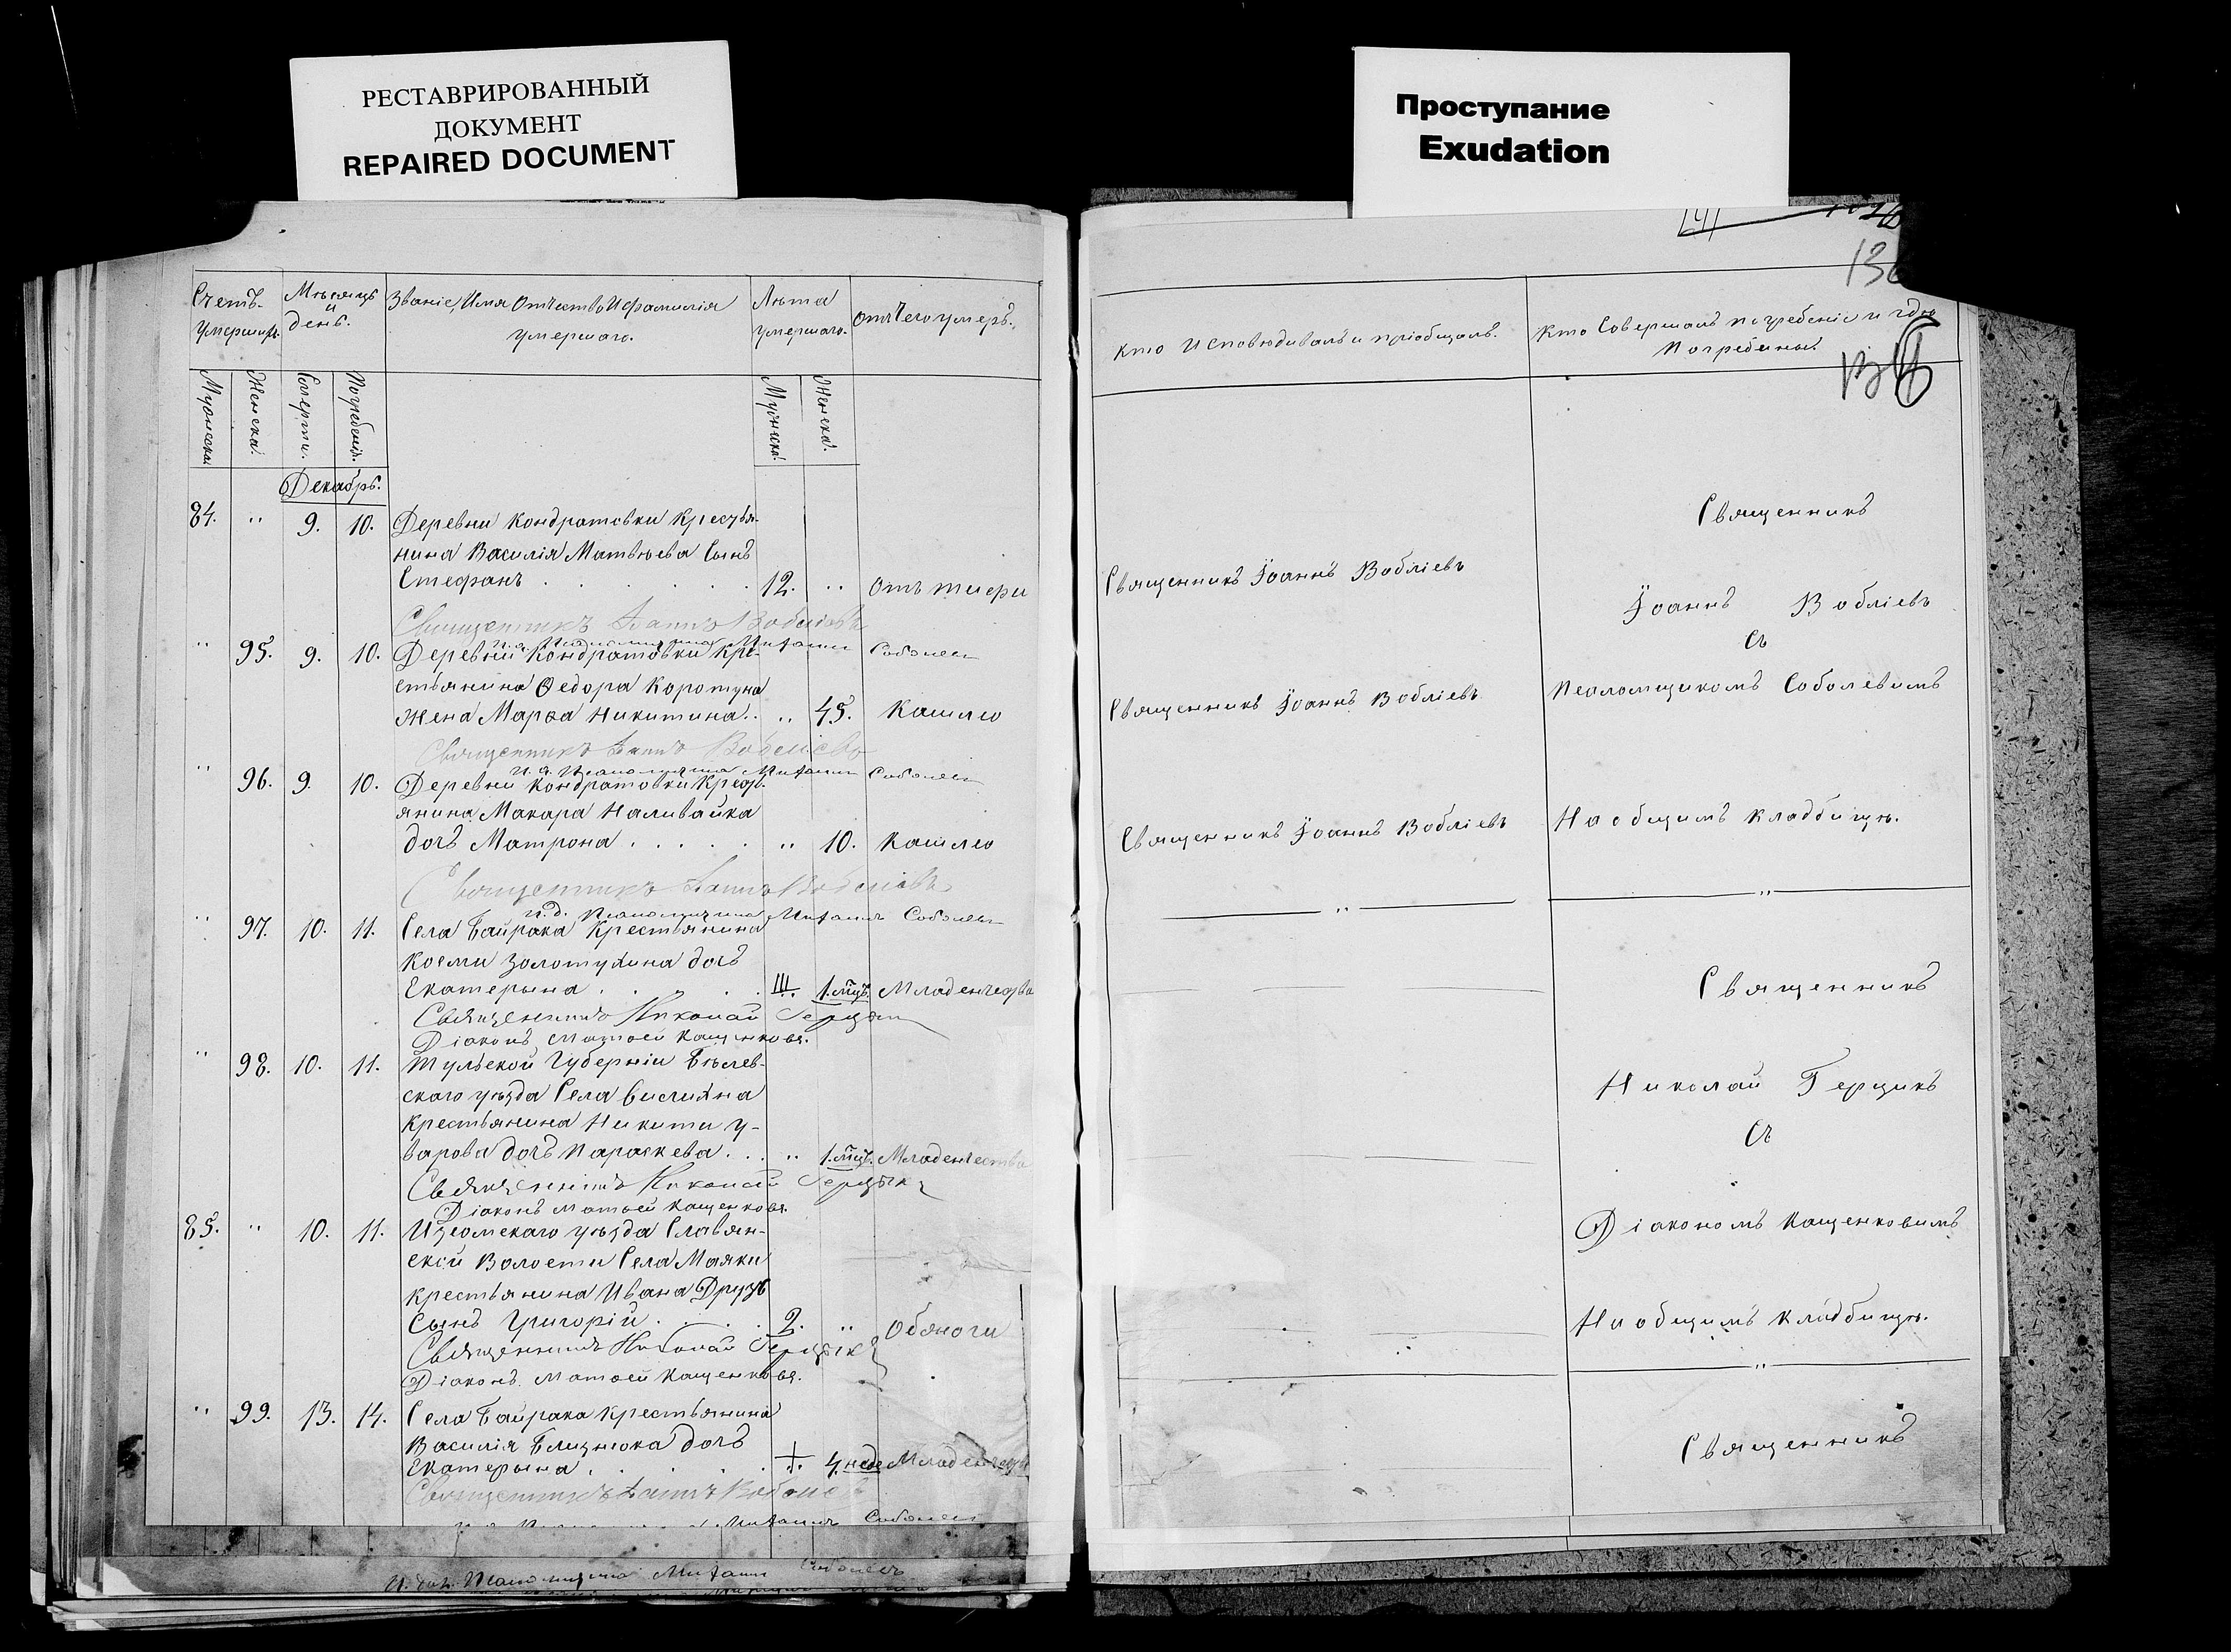 РЕСТАВРИРОВАННЫЙ
ДОКУМЕНТ
REPAIRED DOCUMENT
Проступание
Exudation
Счетъ умершихъ.
Мѣсяцъ и день.
Званіе, Имя Отчество И фамилія умершаго.
Лѣта умершаго.
Отъ Чего умеръ.
Мужеска.
Женска.
Смерти.
Погребенія.
Мужска.
Женска.
Декабрь.
84. " 9. 10. Деревни Кондратовки Крестья-
нина Василія Матвѣева Сынъ
Стефанъ 12. " Отъ тифи
Священникъ Іоаннъ Вобліевъ
И. д. Псаломщика Михаилъ Соболевъ
" 95. 9. 10. Деревни Кондратовки Кре-
стьянина Ѳедора Коротуна
Жена Марѳа Никитина. " 45. Кашлю
Священникъ Іоаннъ Вобліевъ
И. д. Псаломщика Михаилъ Соболевъ
" 96. 9. 10. Деревни Кондратовки Кресть-
янина Макара Наливайка
дочь Матрона " 10. Кашлю
Священникъ Іоаннъ Вобліевъ
И. д. Псаломщика Михаилъ Соболевъ
" 97. 10. 11. Села Байрака Крестьянина
Козми Золотухина дочь
Екатерына 1. мцъ. Младенчества
Священникъ Николай Герцыкъ
Діаконъ Матѳей Кащенковъ.
" 98. 10. 11. Тульской Губерніи Бѣлев-
скаго уѣзда Села
Крестьянина Никити У-
варова дочь Параскева. " 1. мцъ. Младенчества
Священникъ Николай Герцыкъ
Діаконъ Матѳей Кащенковъ.
85. " 10. 11. Изюмскаго уѣзда Славян-
ской Волости Села Маяки
Крестьянина Ивана Друзь
Сынъ Григорій 2. "
Священникъ Николай Герцыкъ
Діаконъ Матѳей Кащенковъ.
" 99. 13. 14. Села Байрака Крестьянина
Василія Близнюка Дочь
Екатерына 4. неде Младенчества
Священникъ Іоаннъ Вобліевъ
Михаилъ Соболевъ
И. дол. Псаломщика Михаилъ Соболевъ
Кто Исповѣдивалъ и пріобщалъ.
Кто Совершалъ погребеніе и гдѣ Погребены.
Священникъ Іоаннъ Вобліевъ
Священникъ Іоаннъ Вобліевъ
Священникъ Іоаннъ Вобліевъ
Священникъ
Іоаннъ Вобліевъ
Съ
Псаломщикомъ Соболевимъ
На общимъ кладбищѣ.
Священникъ
Николай Герцикъ
Съ
Діакономъ Кащенковимъ
На общимъ кладбищѣ.
Священникъ